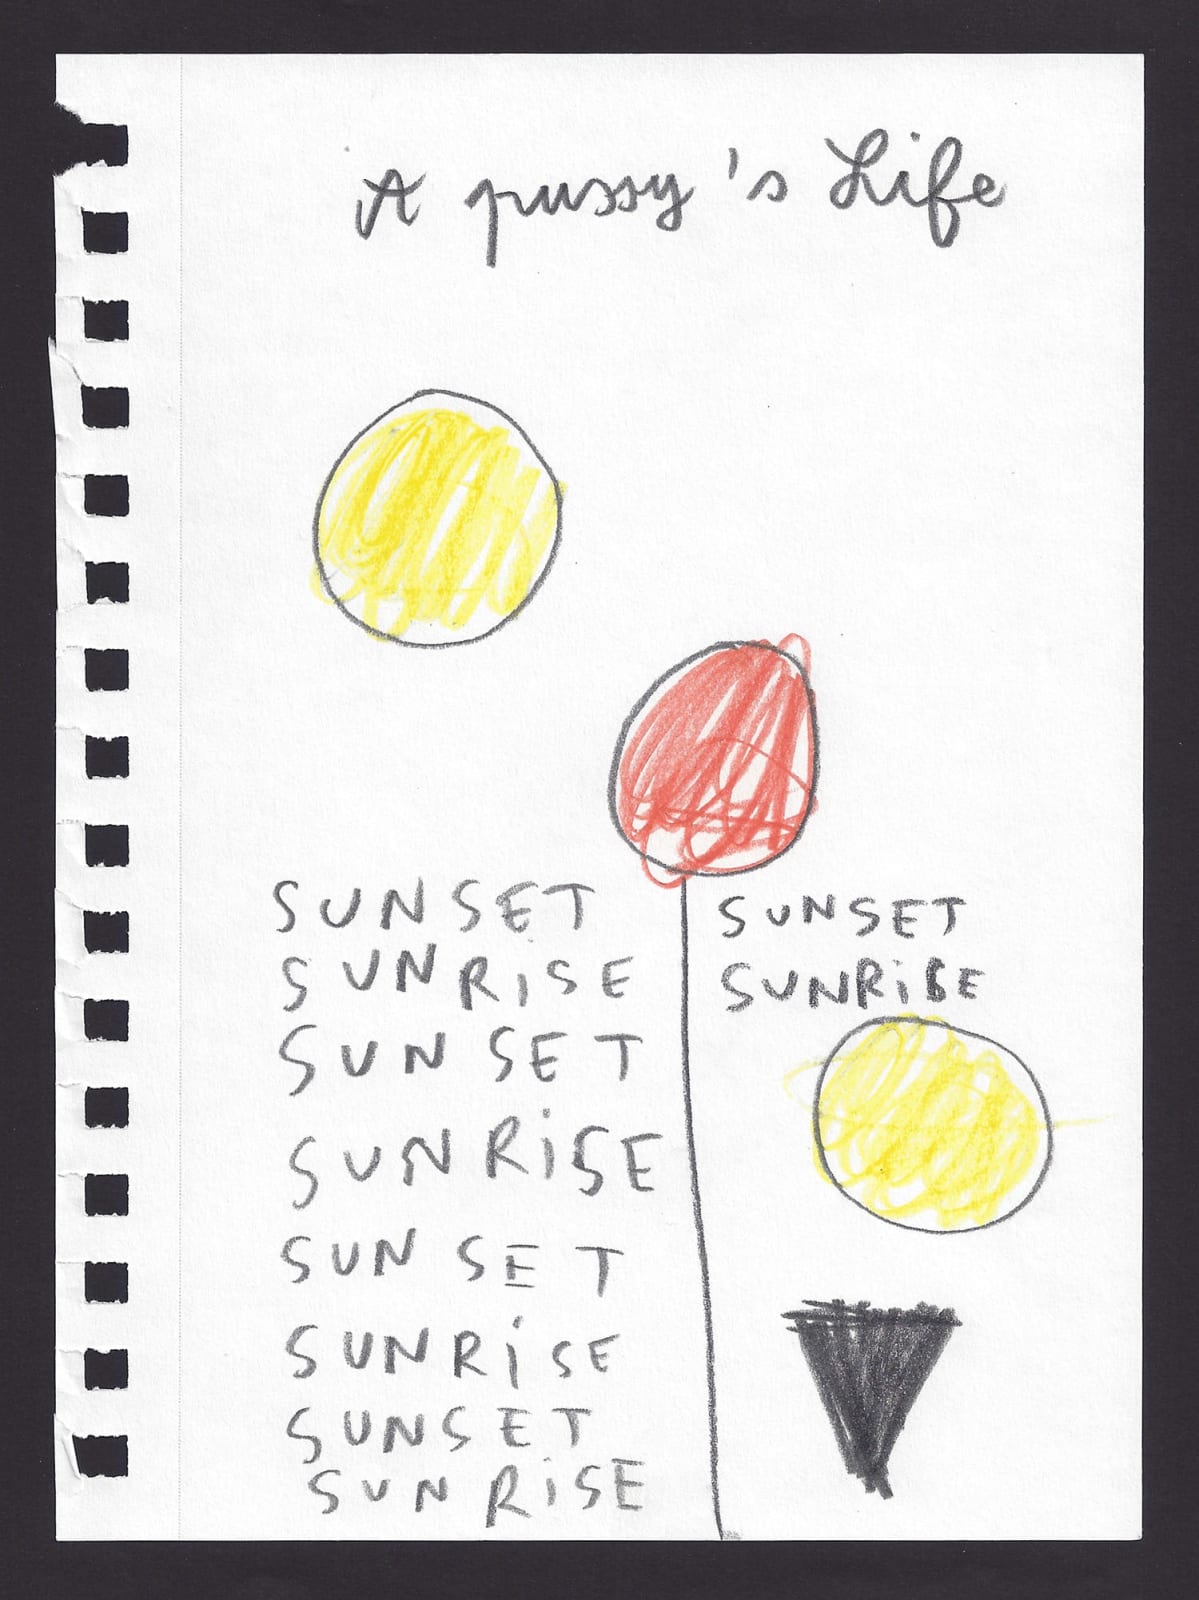 A pussy's Life
SUNSET
SUNRiSE
SUNSET
SUNRiSE
SUNSET
SUNRiSE
SUNSET
SUNRiSE
SUNSET
SUNRiSE